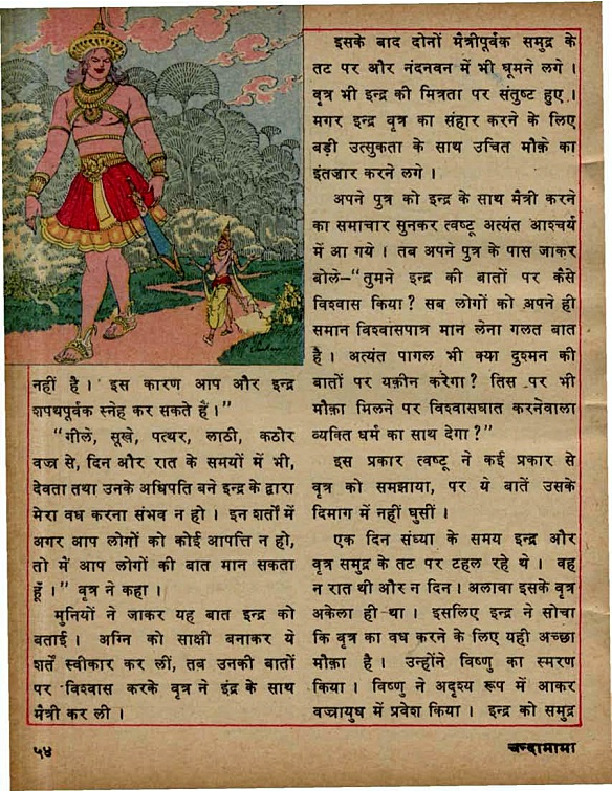 नहीं है। इस कारण आप और इन्द्र
शपथपूर्वक स्नेह कर सकते हैं।"
"गीले, सूखे, पत्थर, लाठी, कठोर
वज्र से, दिन और रात के समयों में भी,
देवता तथा उनके अधिपति बने इन्द्र के द्वारा
मेरा वध करना संभव न हो। इन शर्तों में
अगर आप लोगों को कोई आपत्ति न हो,
तो में आप लोगों की बात मान सकता
हूँ।" वृत्र ने कहा।
मुनियों ने जाकर यह बात इन्द्र को
बताई। अग्नि को साक्षी बनाकर ये
शर्तें स्वीकार कर लीं, तब उनकी बातों
पर विश्वास करके वृत्र ने इंद्र के साथ
मैत्री कर ली।
इसके बाद दोनों मैत्रीपूर्वक समुद्र के
तट पर और नंदनवन में भी घूमने लगे।
वृत्र भी इन्द्र की मित्रता पर संतुष्ट हुए।
मगर इन्द्र वृत्र का संहार करने के लिए
बड़ी उत्सुकता के साथ उचित मौक़े का
इंतज़ार करने लगे।
अपने पुत्र को इन्द्र के साथ मैत्री करने
का समाचार सुनकर त्वष्टृ अत्यंत आश्चर्य
में आ गये। तब अपने पुत्र के पास जाकर
बोले-"तुमने इन्द्र की बातों पर कैसे
विश्वास किया? सब लोगों को अपने ही
समान विश्वासपात्र मान लेना गलत बात
है। अत्यंत पागल भी क्या दुश्मन की
बातों पर यक़ीन करेगा? तिस पर भी
मौक़ा मिलने पर विश्वासघात करनेवाला
व्यक्ति धर्म का साथ देगा?"
इस प्रकार त्वष्टृ ने कई प्रकार से
वृत्र को समझाया, पर ये बातें उसके
दिमाग में नहीं घुसीं।
एक दिन संध्या के समय इन्द्र और
वृत्र समुद्र के तट पर टहल रहे थे। वह
न रात थी और न दिन। अलावा इसके वृत्र
अकेला ही था। इसलिए इन्द्र ने सोचा
कि वृत्र का वध करने के लिए यही अच्छा
मौक़ा है। उन्होंने विष्णु का स्मरण
किया। विष्णु ने अदृश्य रूप में आकर
वज्रायुध में प्रवेश किया। इन्द्र को समुद्र
५४
चन्दामामा